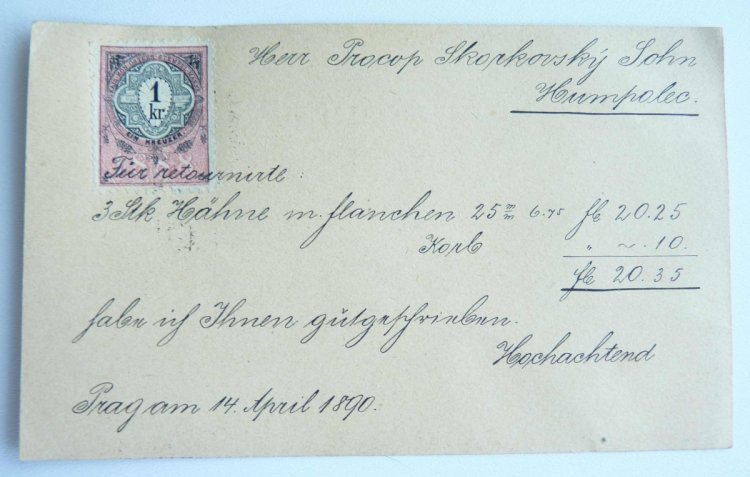 Herr Procop Skorkovský Sohn
Humpolec.
1
kr.
EIN KREUZER.
Für retournirte
3 Stk. Hähne m. flanchen 25 m/m 6.75 fl 20.25
Korb " ~. 10.
fl 20.35
habe ich Ihnen gutgeschrieben.
Hochachtend
Prag am 14. April 1890.